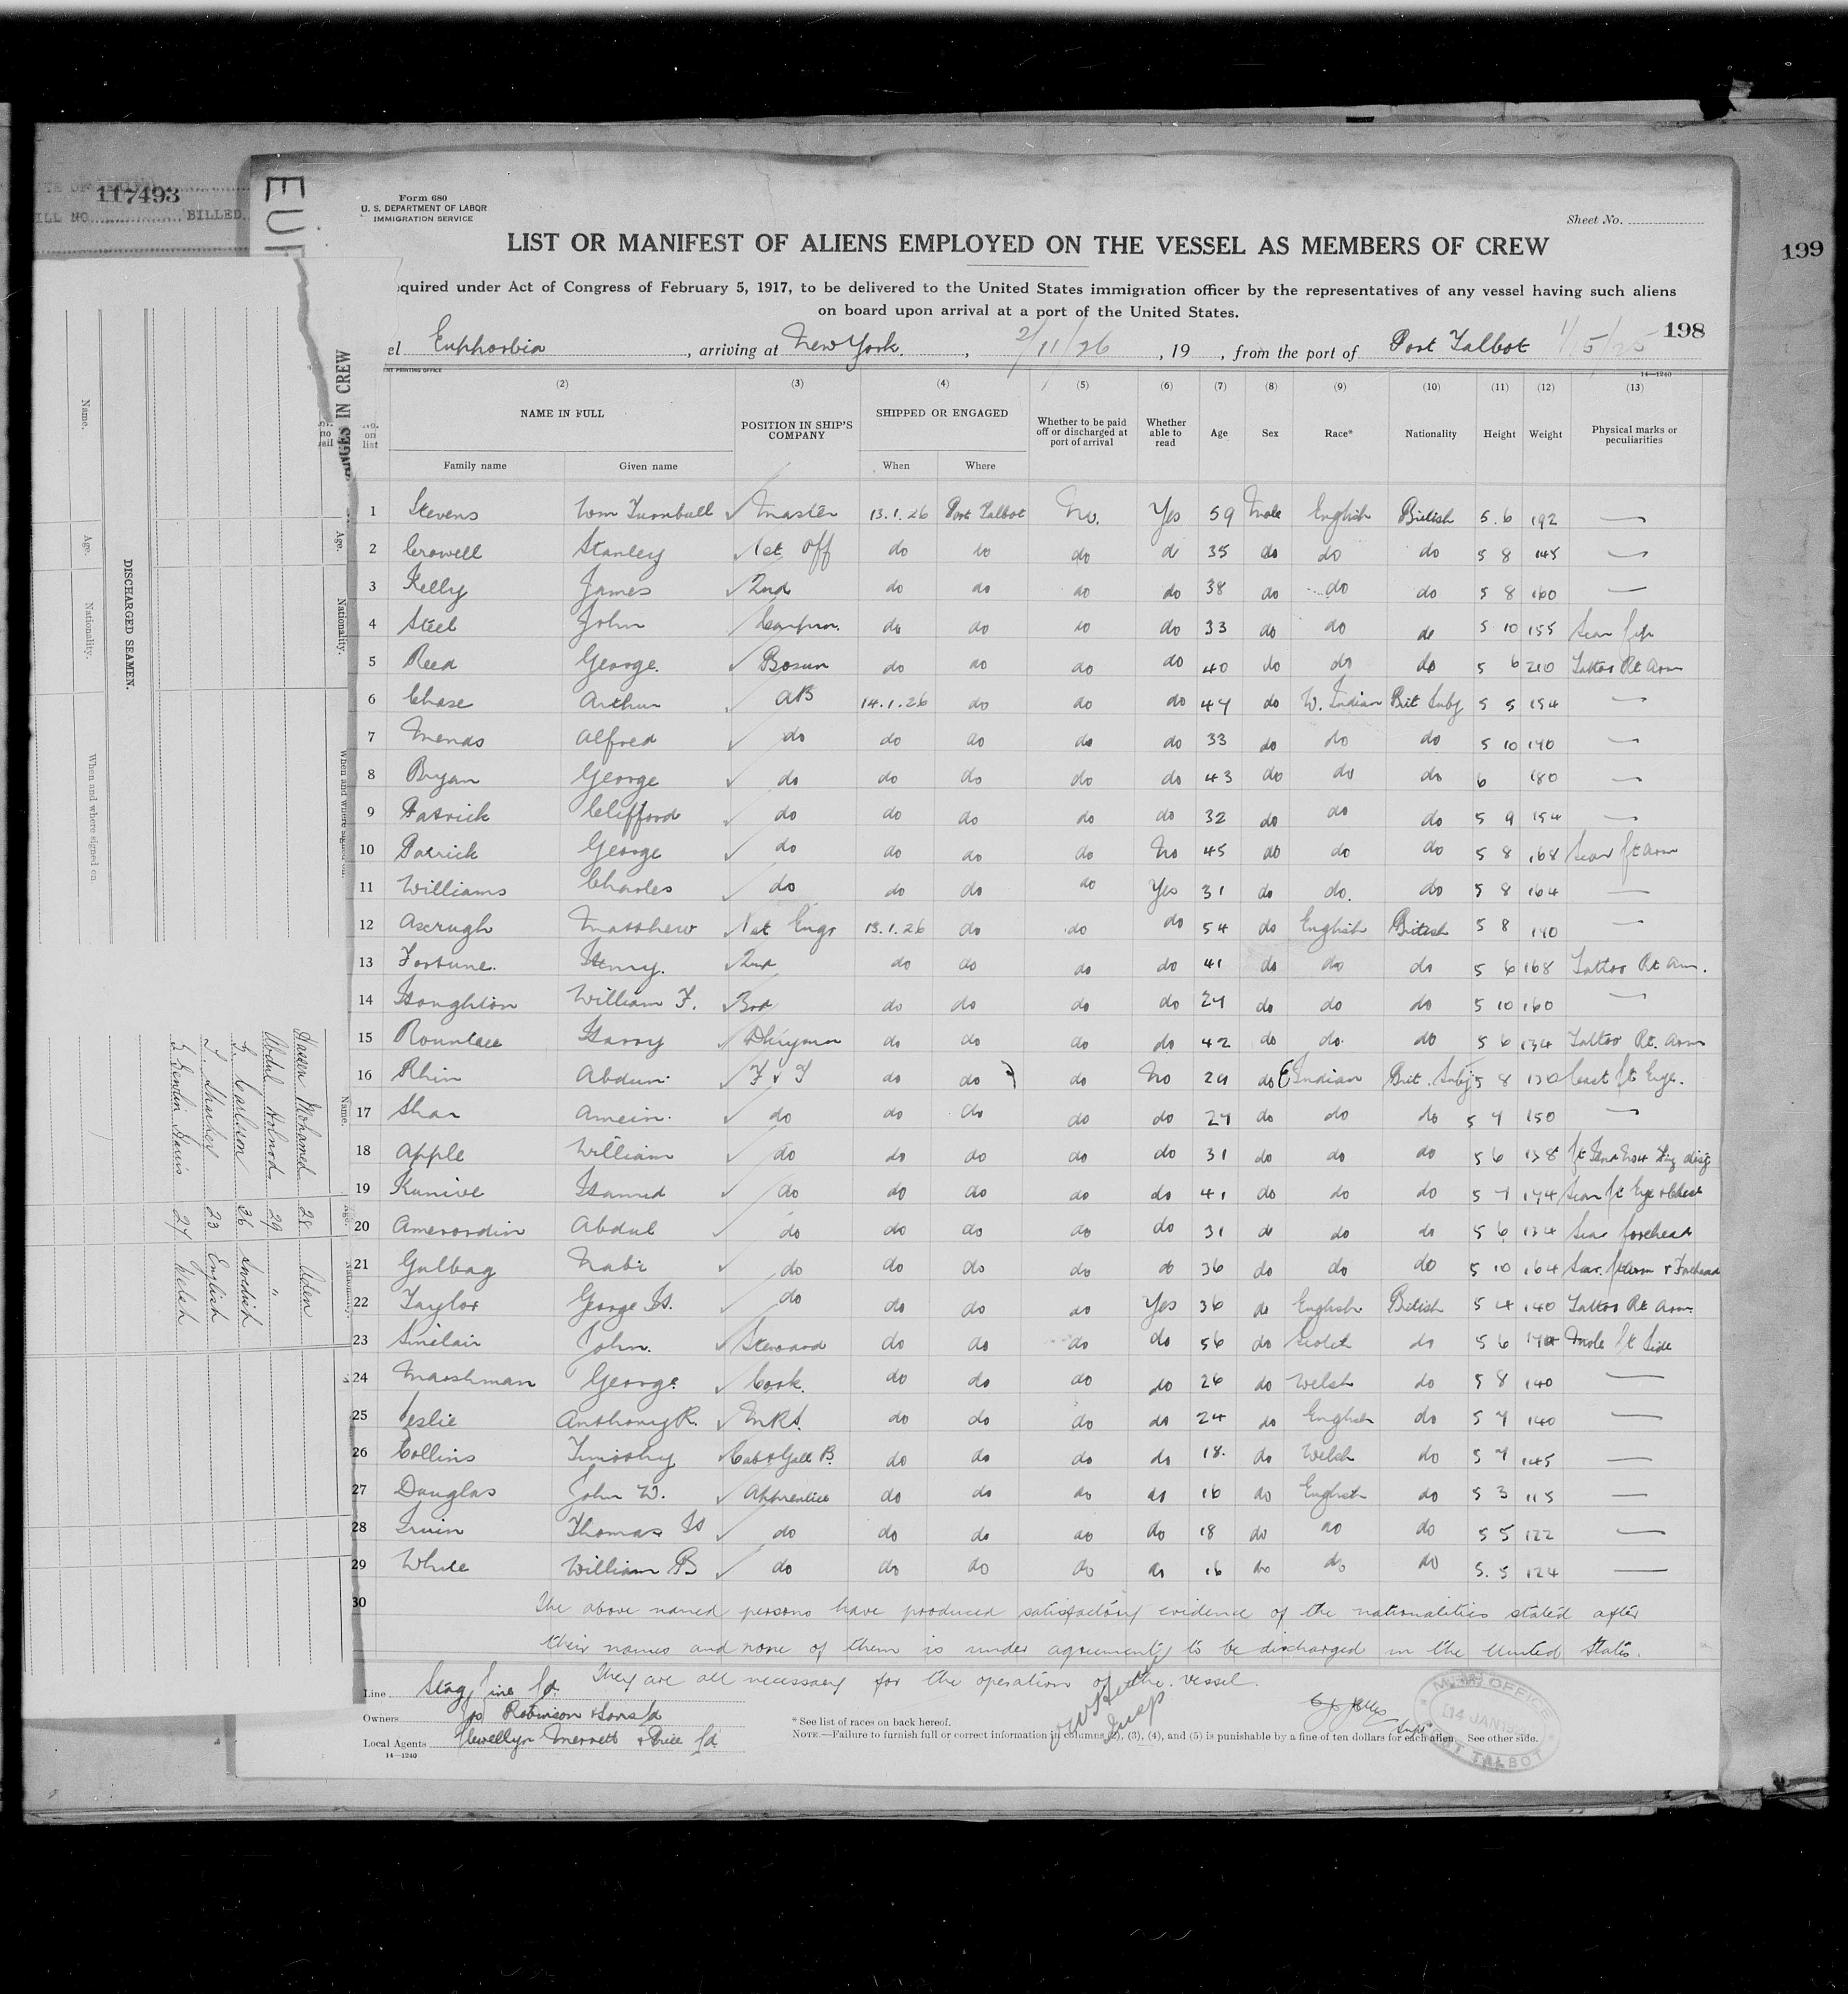 117493
BILLED
EUP
Form 680
U. S. DEPARTMENT OF LABOR
IMMIGRATION SERVICE
Sheet No.
199
LIST OR MANIFEST OF ALIENS EMPLOYED ON THE VESSEL AS MEMBERS OF CREW
quired under Act of Congress of February 5, 1917, to be delivered to the United States immigration officer by the representatives of any vessel having such aliens
on board upon arrival at a port of the United States.
198
el Euphorbia, arriving at New York, 2/11/26, 19 , from the port of Port Talbot
14—1240
(2) (3) (4) (5) (6) (7) (8) (9) (10) (11) (12) (13)
No. on list NAME IN FULL POSITION IN SHIP'S COMPANY SHIPPED OR ENGAGED Whether to be paid off or discharged at port of arrival Whether able to read Age Sex Race* Nationality Height Weight Physical marks or peculiarities
Family name Given name When Where
1 Stevens Wm Turnbull Master 13.1.26 Port Talbot No. Yes 59 Male English British 5.6 192 —
2 Crowell Stanley 1st Off do do do do 35 do do do 5 8 145 —
3 Kelly James 2nd do do do do 38 do do do 5 8 160 —
4 Steel John do do do do 33 do do do 5 10 155 Scar
5 Reed George. Bosun do do do do 40 do do do 5 6 210 Tattoo Rt Arm
6 Chase Arthur AB 14.1.26 do do do 47 do W. Indian Brit Subj 5 5 154 —
7 Mends Alfred do do do do do 33 do do do 5 10 140 —
8 Bryan George do do do do do 43 do do do 6 180 —
9 Patrick Clifford do do do do do 32 do do do 5 9 154 —
10 Patrick George do do do do No 45 do do do 5 8 168 Scar Lt Arm
11 Williams Charles do do do do Yes 31 do do. do 5 8 164 —
12 Ascrugh Matthew 1st Engr 13.1.26 do do do 54 do English British 5 8 140 —
13 Fortune. Henry. 2nd do do do do 41 do do do 5 6 168 Tattoo Rt Arm.
14 Houghton William F. 3rd do do do do 27 do do do 5 10 160 —
15 Rountree Harry Dkeyman do do do do 42 do do. do 5 6 134 Tattoo Rt. Arm
16 Rhim Abdun. F & T do do do No 29 do E Indian Brit. Subj 5 8 130 Cast Lt Eye.
17 Shar Amein. do do do do do 27 do do do 5 7 150 —
18 Apple William do do do do do 31 do do do 5 6 138
19 Kunive Hamed do do do do do 41 do do do 5 7 174 Scar Lt Eye & Chest
20 Amerordin Abdul do do do do do 31 do do do 5 6 134 Scar forehead
21 Gulbag Nabi do do do do do 36 do do do 5 10 164 Scar. Lt Arm & Forehead
22 Taylor George H. do do do do Yes 36 do English British 5 4 140 Tattoo Rt Arm.
23 Sinclair John. Steward do do do do 56 do Scotch do 5 6 Mole Lt Side
24 Marshman George. Cook. do do do do 26 do Welsh do 5 8 140 —
25 Leslie Anthony R. do do do do 24 do English do 5 7 140 —
26 Collins Timothy Cab & Gall B. do do do do 18. do Welsh do 5 7 145 —
27 Douglas John W. Apprentice do do do do 16 do English do 5 3 115 —
28 Irvin Thomas H do do do do do 18 do do do 5 5 122 —
29 White William B do do do do do 16 do do do 5.5 124 —
30 The above named persons have produced satisfactory evidence of the nationalities stated after
their names and none of them is under agreement to be discharged in the United States.
They are all necessary for the operation of the vessel.
Line Stag Line Ld.
Owners Jos Robinson & Sons Ld
Local Agents Llewellyn Merrett & Price Ld
14—1240
*See list of races on back hereof.
NOTE.—Failure to furnish full or correct information in columns (2), (3), (4), and (5) is punishable by a fine of ten dollars for each alien. See other side.
Supt
OFFICE
14 JAN 19
PORT TALBOT
ANGES IN CREW
Name. Age. Nationality.
Hassen Mohamed 28 Aden
Abdul 29 "
G. Carlson 26 Swedish
T. Sharkey 23 English
27 Welsh
DISCHARGED SEAMEN.
Name. Age. Nationality. When and where signed on.